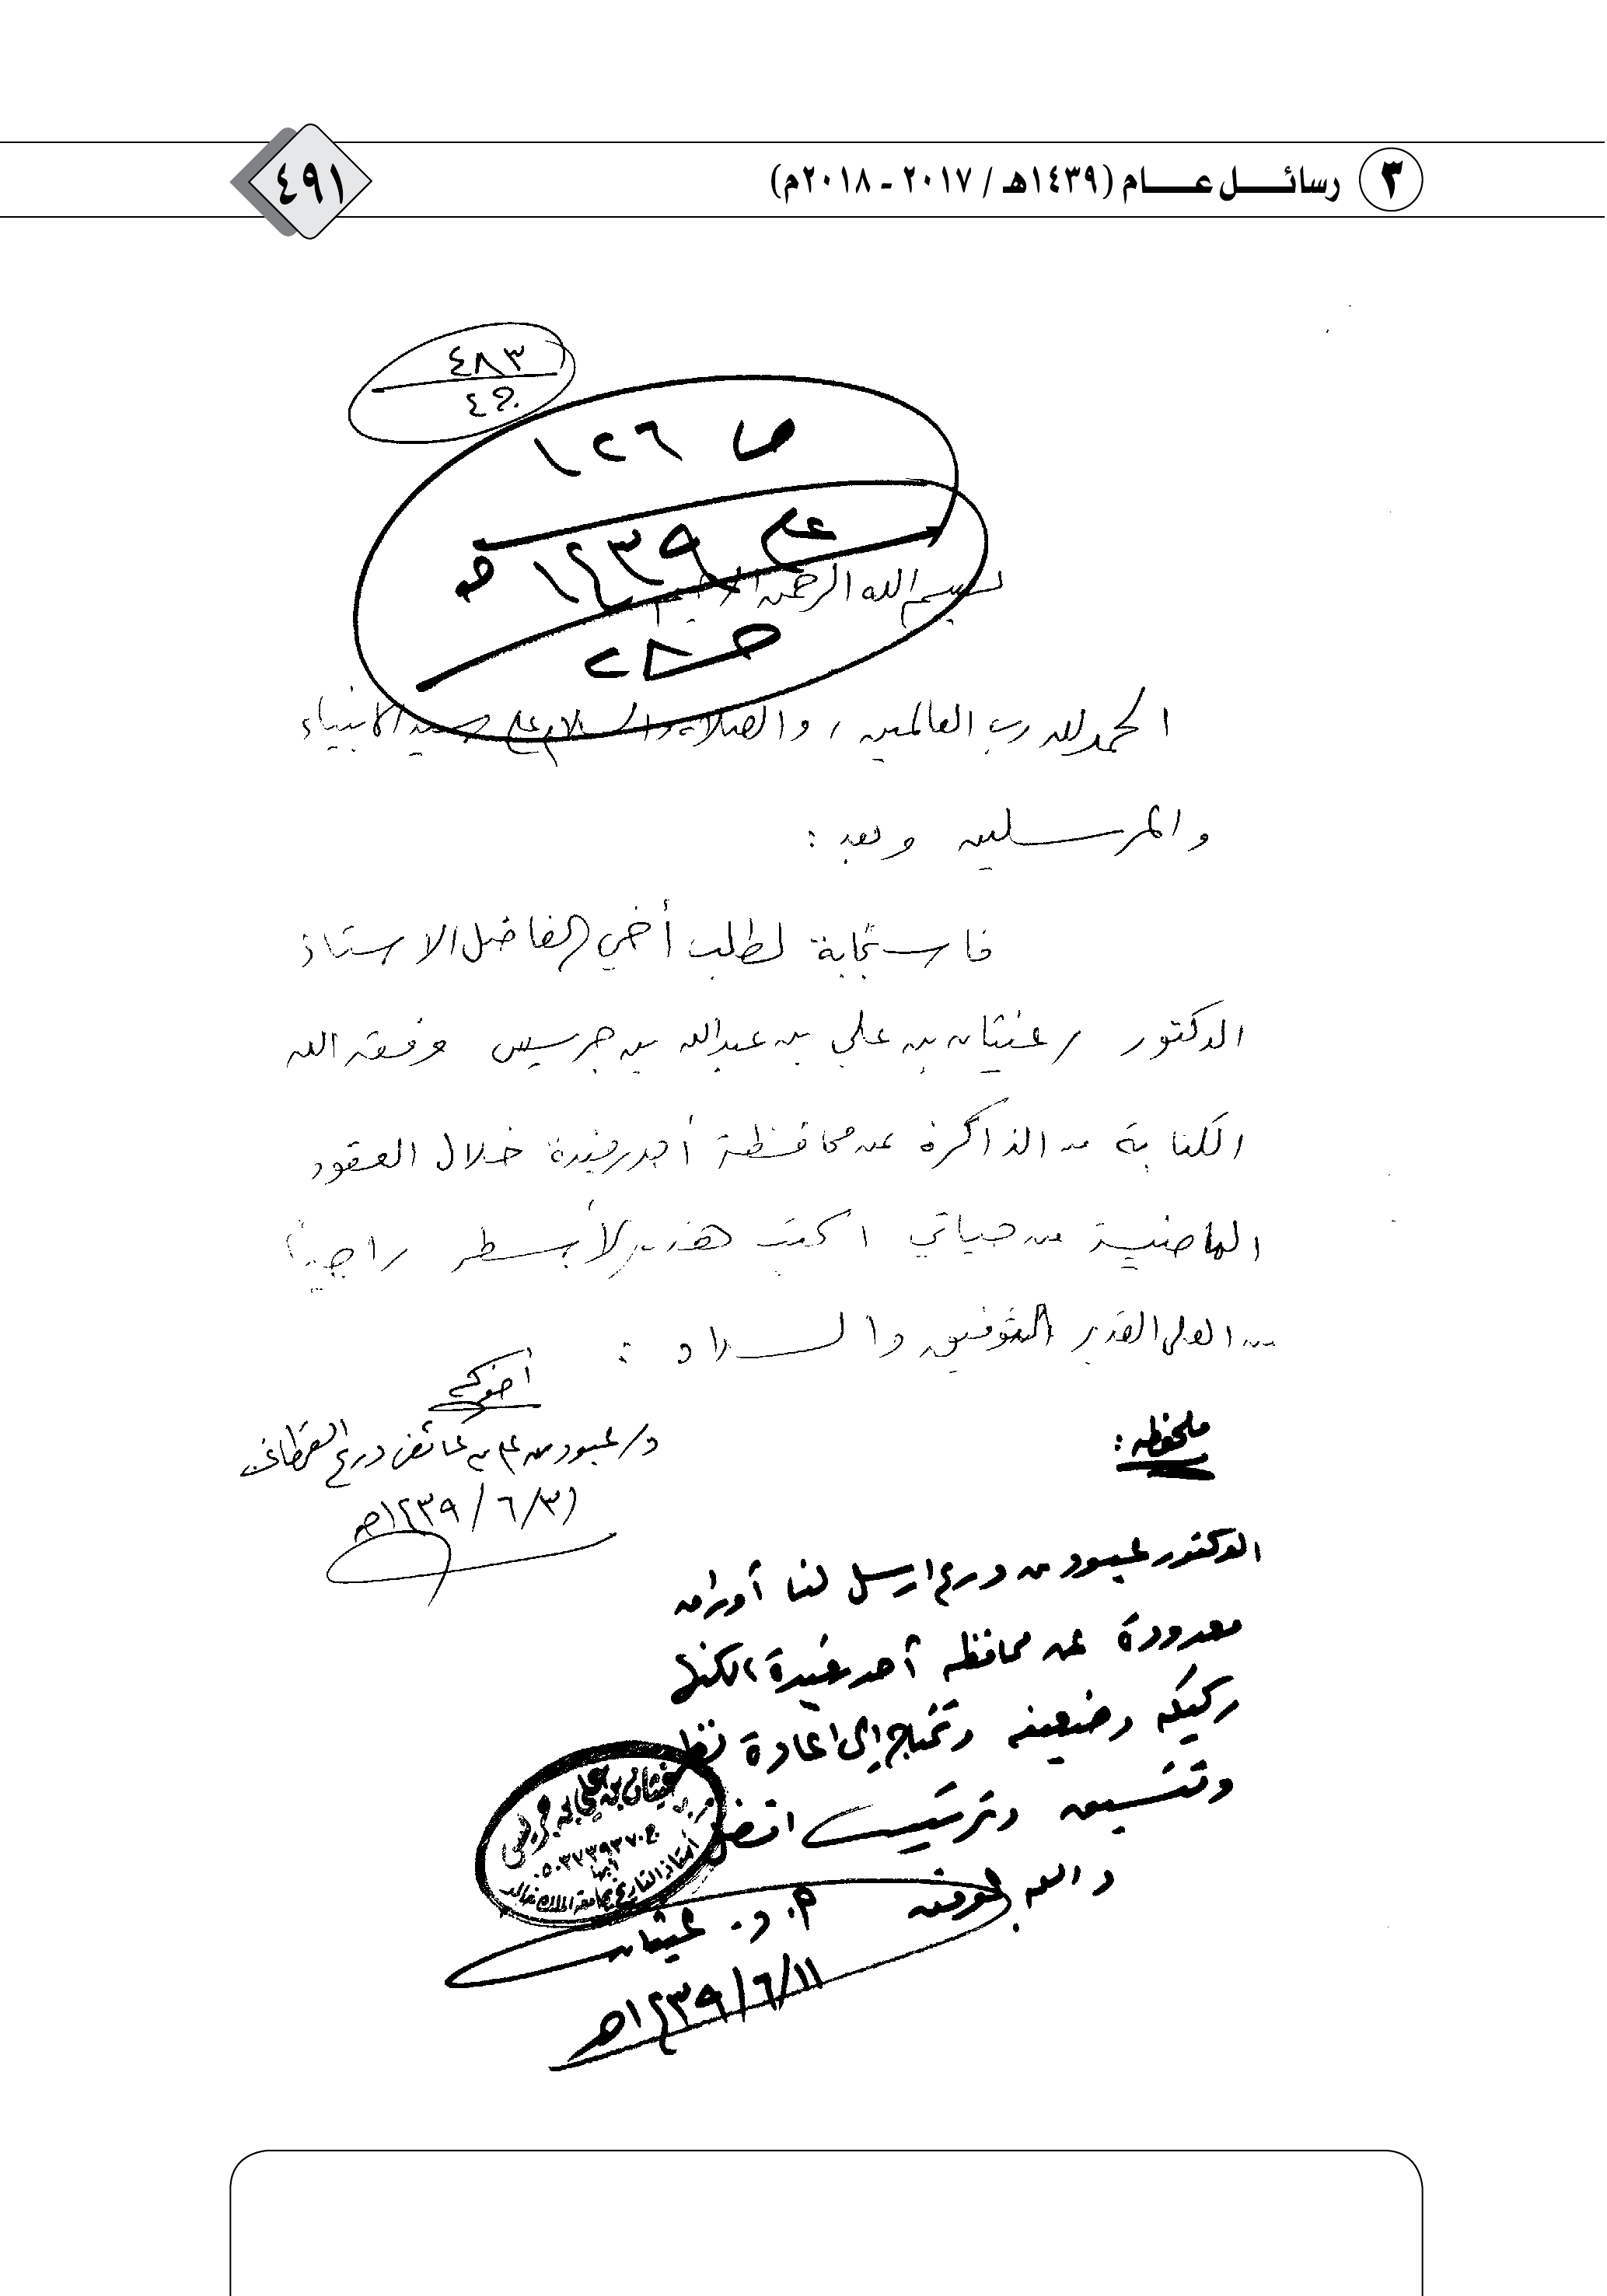 ٣ رسائل عام (١٤٣٩هـ / ٢٠١٧ - ٢٠١٨م)
٤٩١
٤٨٣
ص ١٢٦
عام ١٤٣٩هـ
بسم الله الرحمن الرحيم
الحمد لله رب العالمين، والصلاة والسلام على سيد الأنبياء
والمرسلين وبعد:
فاستجابة لطلب أخي الفاضل الاستاذ
الدكتور / غيثان بن علي بن عبدالله بن جريس وفقه الله
الكتابة من الذاكرة عن محافظة أحد رفيدة خلال العقود
الماضية من حياتي اكتب هذه الأسطر راجياً
من العلي القدير التوفيق والسداد:
أخوكم
د/ عبود بن علي بن عائض درع القحطاني
٣/٦/١٤٣٩هـ
ملحوظه:
الدكتور عبود بن درع ارسل لنا أوراق
معدودة عن محافظه أحد رفيدة لكنها
ركيكه وضعيفه وتحتاج إلى اعادة نظر
وتنسيق وترتيب افضل
والله الموفق
أ. د. غيثان
١١/٦/١٤٣٩هـ
غيثان بن علي بن جريس
ج. ٠٥٠٣٧٣٩٣٧٠
أبها
أستاذ التاريخ بجامعة الملك خالد